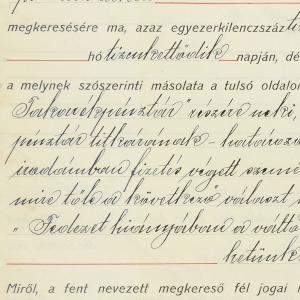 megkeresésére ma, azaz egyezerkilenczszáz
hó tizenkettedik napján, dé
a melynek szószerinti másolata a tulsó oldalon
Takarékpénztár" részére neki,
pénztár titkárának – határozo
irodámban fizetés végett szeme
mire tőle a következő választ
„Fedezet hiányában a váltó
hetünk
Miről, a fent nevezett megkereső fél jogai